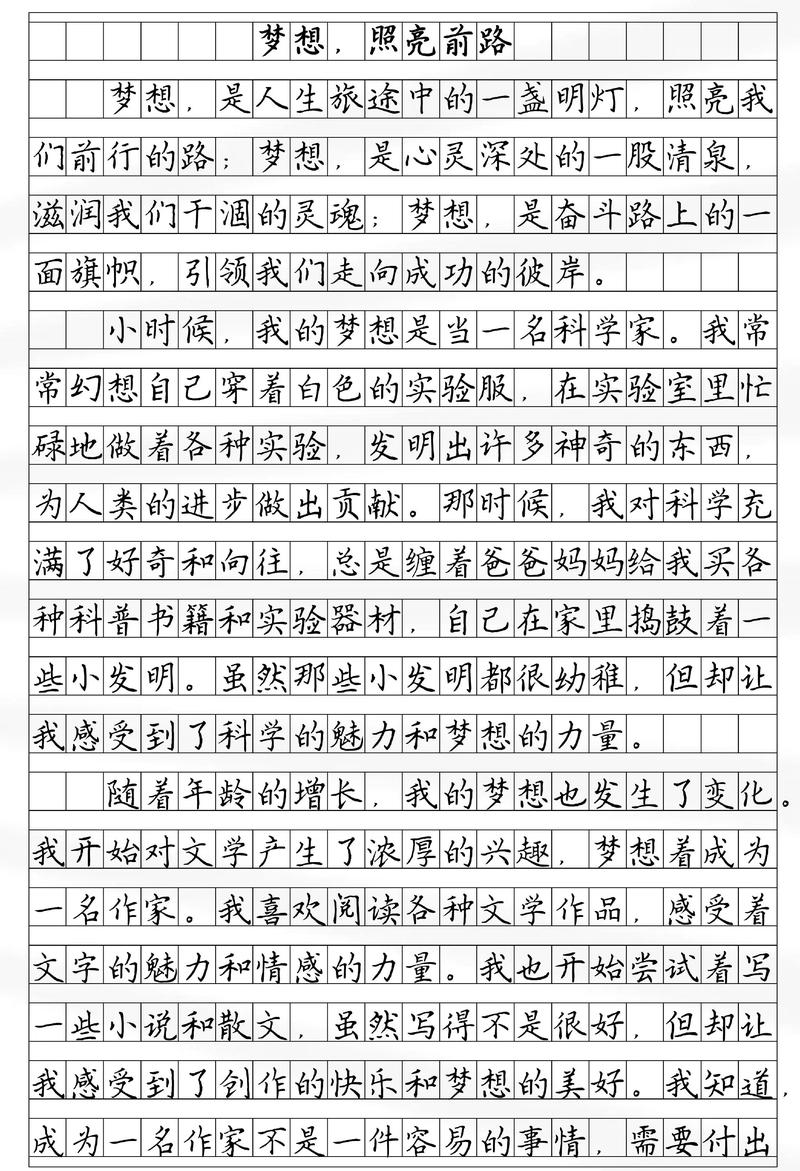 梦想，照亮前路
梦想，是人生旅途中的一盏明灯，照亮我
们前行的路；梦想，是心灵深处的一股清泉，
滋润我们干涸的灵魂；梦想，是奋斗路上的一
面旗帜，引领我们走向成功的彼岸。
小时候，我的梦想是当一名科学家。我常
常幻想自己穿着白色的实验服，在实验室里忙
碌地做着各种实验，发明出许多神奇的东西，
为人类的进步做出贡献。那时候，我对科学充
满了好奇和向往，总是缠着爸爸妈妈给我买各
种科普书籍和实验器材，自己在家里捣鼓着一
些小发明。虽然那些小发明都很幼稚，但却让
我感受到了科学的魅力和梦想的力量。
随着年龄的增长，我的梦想也发生了变化。
我开始对文学产生了浓厚的兴趣，梦想着成为
一名作家。我喜欢阅读各种文学作品，感受着
文字的魅力和情感的力量。我也开始尝试着写
一些小说和散文，虽然写得不是很好，但却让
我感受到了创作的快乐和梦想的美好。我知道，
成为一名作家不是一件容易的事情，需要付出